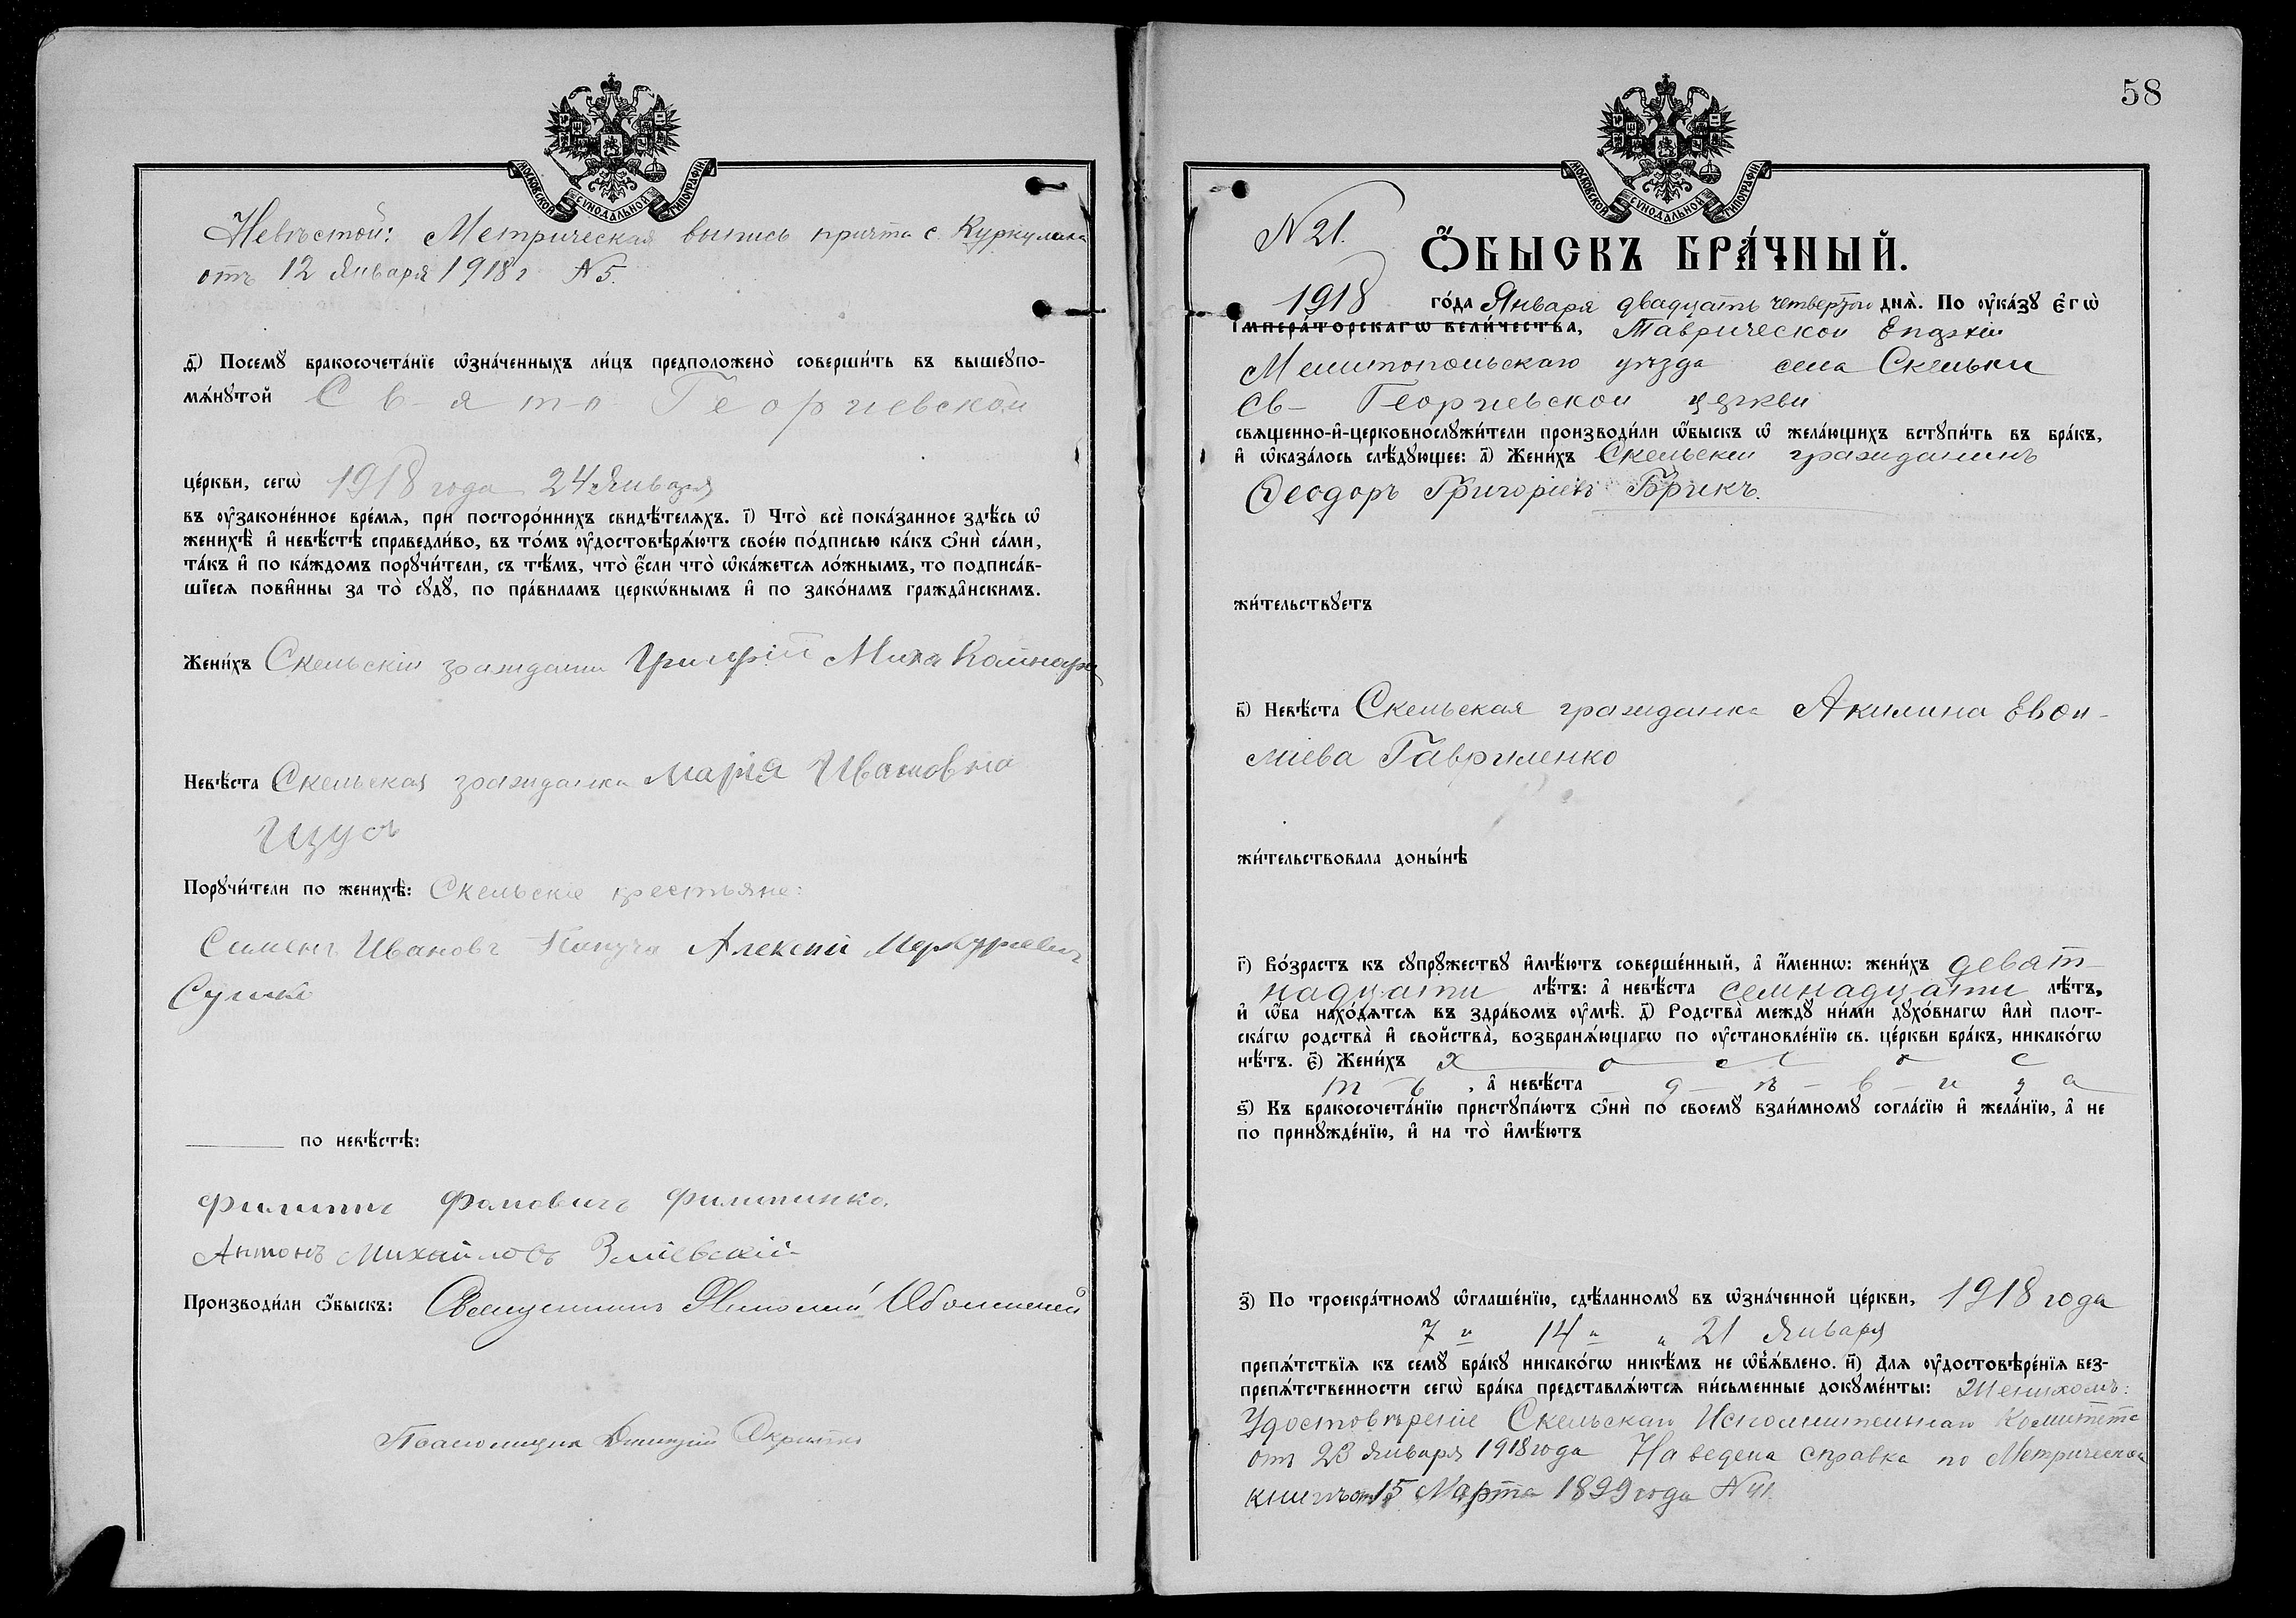 МОСКОВСКОЙ СѴНОДАЛЬНОЙ ТИПОГРАФІИ
Невѣстой: Метрическая выпись причта с. Куркулака
отъ 12 Января 1918 г N 5.
д҃) Посемꙋ бракосочета́нїе ѡ҆зна́ченныхъ ли́цъ предположено̀ соверши́ть въ вышеꙋпо-
мѧ́нꙋтой Свято Георгиевской
це́ркви, сегѡ̀ 1918 года 24 Января
въ ᲂу҆законе́нное вре́мѧ, при посторо́ннихъ свидѣ́телѧхъ. і҃) Что̀ всѐ пока́занное здѣ́сь ѡ҆
женихѣ̀ и҆ невѣ́стѣ справедли́во, въ то́мъ ᲂу҆достовѣрѧ́ютъ свое́ю по́дписью ка́къ ѻ҆нѝ са́ми,
та́къ и҆ по ка́ждомъ порꙋчи́тели, съ тѣ́мъ, что̀ є҆́сли что̀ ѡ҆ка́жетсѧ ло́жнымъ, то подписа́в-
шїесѧ пови́нны за то̀ сꙋдꙋ̀, по пра́виламъ церкѡ́внымъ и҆ по зако́намъ гражда̂нскимъ.
Жени́хъ Скельскій гражданин Григорій
Невѣ́ста Скельская гражданка Марія Ивановна
Порꙋчи́тели по женихѣ̀: Скельскіе крестьяне:
Симеонъ Ивановъ Алексій Меркурiевич
по невѣ́стѣ:
Филиппъ Филипенко.
Антонъ Михайловъ Зміевскій
Производи́ли ѻ҆́быскъ: Священникъ
Псаломщик Димитрій
58
МОСКОВСКОЙ СѴНОДАЛЬНОЙ ТИПОГРАФІИ
N 21.
Ѻ҆́БЫСКЪ БРА́ЧНЫЙ.
1918 го́да Января двадцать четвертого днѧ̀. По ᲂу҆ка́зꙋ є҆гѡ̀
і҆мпера́торскагѡ вели́чества, Таврической Епархіи
Мелитопольскаго уѣзда села Скельки
Св- Георгиевской церкви
свѧще́нно-и҆-церковнослꙋжи́тели производи́ли ѡ҆́быскъ ѡ҆ жела́ющихъ встꙋпи́ть въ бра́къ,
и҆ ѡ҆каза́лось слѣ́дꙋющее: а҃) Жени́хъ Скельскій гражданинъ
Ѳеодоръ Григоріевъ Брикъ.
жи́тельствꙋетъ
в҃) Невѣ́ста Скельская гражданка Акилина Евѳи-
міева Гавриленко
жи́тельствовала доны́нѣ
г҃) Во́зрастъ къ сꙋпрꙋ́жествꙋ и҆мѣ́ютъ соверше́нный, а҆ и҆́меннѡ: жени́хъ девят-
надцати лѣ́тъ: а҆ невѣ́ста семнадцати лѣ́тъ,
и҆ ѡ҆́ба нахо́дѧтсѧ въ здра́вомъ ᲂу҆мѣ̀. д҃) Родства̀ междꙋ̀ ни́ми дꙋхо́внагѡ и҆лѝ плот-
ска́гѡ родства̀ и҆ свойства̀, возбранѧ́ющагѡ по ᲂу҆становле́нїю св. це́ркви бра́къ, никако́гѡ
нѣ́тъ. є҃) Жени́хъ холос
тъ, а҆ невѣ́ста дѣвица
ѕ҃) Къ бракосочета́нїю пристꙋпа́ютъ ѻ҆нѝ по своемꙋ̀ взаи́мномꙋ согла́сїю и҆ жела́нїю, а҆ не
по принꙋжде́нїю, и҆ на то̀ и҆мѣ́ютъ
з҃) По троекра́тномꙋ ѡ҆глаше́нїю, сдѣ́ланномꙋ въ ѡ҆зна́ченной це́ркви, 1918 года
7 " 14 " " 21 Января
препѧ́тствїѧ къ семꙋ̀ бра́кꙋ никако́гѡ никѣ́мъ не ѡ҆б̾ѧ́влено. и҃) Длѧ ᲂу҆достовѣре́нїѧ без-
препѧ́тственности сегѡ̀ бра́ка представлѧ́ютсѧ пи́сьменные докꙋме́нты: Женихомъ:
Удостовѣреніе Скельскаго Исполнительнаго Комитета
отъ 23 Января 1918 года Наведена справка по Метрической
книгѣ от 15 Марта 1899 года N 41.